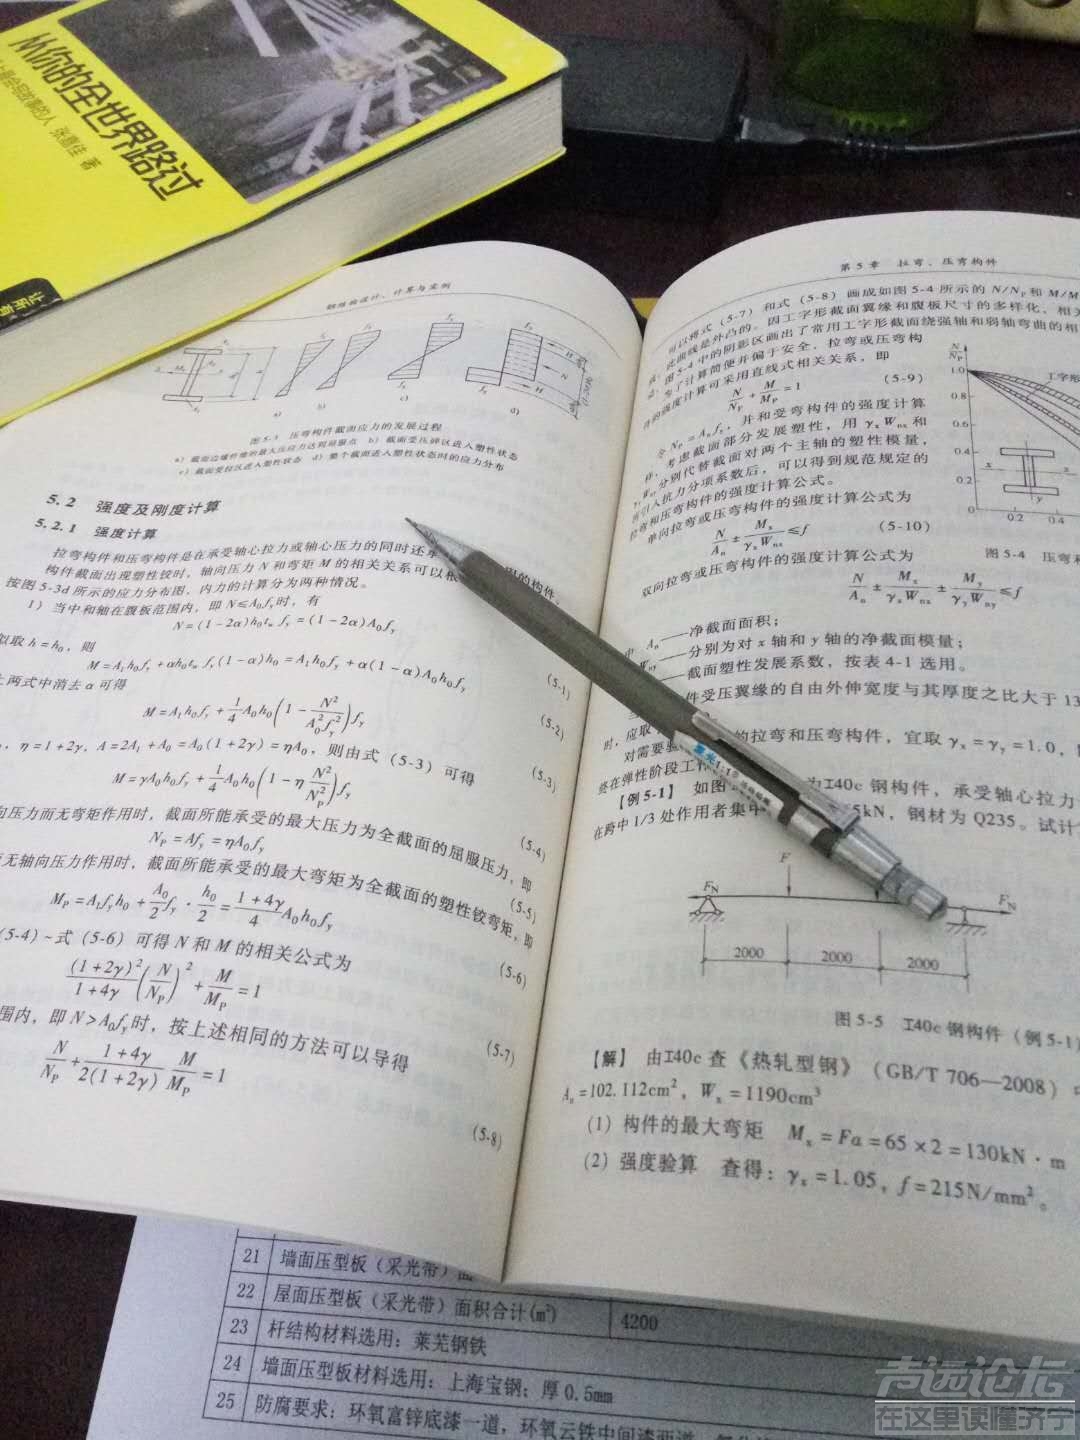 从你的全世界路过
张嘉佳 著
让所有
钢结构设计、计算与实例
a) b) c) d)
图5-3 压弯构件截面应力的发展过程
a) 截面边缘纤维的最大压应力达到屈服点 b) 截面受压碎区进入塑性状态
c) 截面受拉区进入塑性状态 d) 整个截面进入塑性状态时的应力分布
5.2 强度及刚度计算
5.2.1 强度计算
拉弯构件和压弯构件是在承受轴心拉力或轴心压力的同时还
的构件,
构件截面出现塑性铰时, 轴向压力 N 和弯矩 M 的相关关系可以根
按图5-3d所示的应力分布图, 内力的计算分为两种情况。
1) 当中和轴在腹板范围内, 即 N≤A₀fy时, 有
N=(1-2α)h₀tw fy=(1-2α)A₀fy
取 h=h₀, 则
(5-1)
M=A₁h₀fy+αh₀tw fy(1-α)h₀=A₁h₀fy+α(1-α)A₀h₀fy
(5-2)
两式中消去 α 可得
M=A₁h₀fy+1/4 A₀h₀(1-N²/A₀²fy²)fy
(5-3)
η=1+2γ, A=2A₁+A₀=A₀(1+2γ)=ηA₀, 则由式 (5-3) 可得
M=γA₀h₀fy+1/4 A₀h₀(1-η N²/NP²)fy
(5-4)
压力而无弯矩作用时, 截面所能承受的最大压力为全截面的屈服压力, 即
NP=Afy=ηA₀fy
(5-5)
无轴向压力作用时, 截面所能承受的最大弯矩为全截面的塑性铰弯矩, 即
MP=A₁fyh₀+A₀/2 fy·h₀/2=(1+4γ)/4 A₀h₀fy
(5-6)
(5-4)~式 (5-6) 可得 N 和 M 的相关公式为
(1+2γ)²/(1+4γ) (N/NP)²+M/MP=1
(5-7)
围内, 即 N>A₀fy时, 按上述相同的方法可以导得
N/NP+(1+4γ)/2(1+2γ) M/MP=1
(5-8)
第5章 拉弯、压弯构件
可以将式 (5-7) 和式 (5-8) 画成如图5-4所示的 N/NP和 M/M
此曲线是外凸的。因工字形截面翼缘和腹板尺寸的多样化, 相关
图5-4中的阴影区画出了常用工字形截面绕强轴和弱轴弯曲的相
为了计算简便并偏于安全, 拉弯或压弯构
件的强度计算可采用直线式相关关系, 即
N/NP+M/MP=1 (5-9)
令 NP=Anfy, 并和受弯构件的强度计算
样, 考虑截面部分发展塑性, 用 γxWnx和
γyWny分别代替截面对两个主轴的塑性模量,
引入抗力分项系数后, 可以得到规范规定的
拉弯和压弯构件的强度计算公式。
单向拉弯或压弯构件的强度计算公式为
N/An±Mx/γxWnx≤f (5-10)
双向拉弯或压弯构件的强度计算公式为
N/An±Mx/γxWnx±My/γyWny≤f
N/NP
1.0
0.8
0.6
0.4
0.2
0
0.2 0.4
工字形
x x
y
图5-4 压弯和
中 An——净截面面积;
Wny——分别为对 x 轴和 y 轴的净截面模量;
——截面塑性发展系数, 按表 4-1 选用。
件受压翼缘的自由外伸宽度与其厚度之比大于 13
时, 应取
对需要验
的拉弯和压弯构件, 宜取 γx=γy=1.0,
终在弹性阶段工作
【例5-1】 如图
为I40c 钢构件, 承受轴心拉力
在跨中 1/3 处作用者集中
65kN, 钢材为 Q235。试计
FN
F
FN
2000 2000 2000
图5-5 I40c 钢构件 (例5-1)
【解】 由I40c 查《热轧型钢》 (GB/T 706—2008)
An=102.112cm², Wx=1190cm³
(1) 构件的最大弯矩 Mx=Fa=65×2=130kN·m
(2) 强度验算 查得: γx=1.05, f=215N/mm²。
21 墙面压型板 (采光带) 面
22 屋面压型板 (采光带) 面积合计(㎡) 4200
23 杆结构材料选用: 莱芜钢铁
24 墙面压型板材料选用: 上海宝钢; 厚 0.5mm
25 防腐要求: 环氧富锌底漆一道, 环氧云铁中间漆两道,
声远论坛
在这里读懂济宁